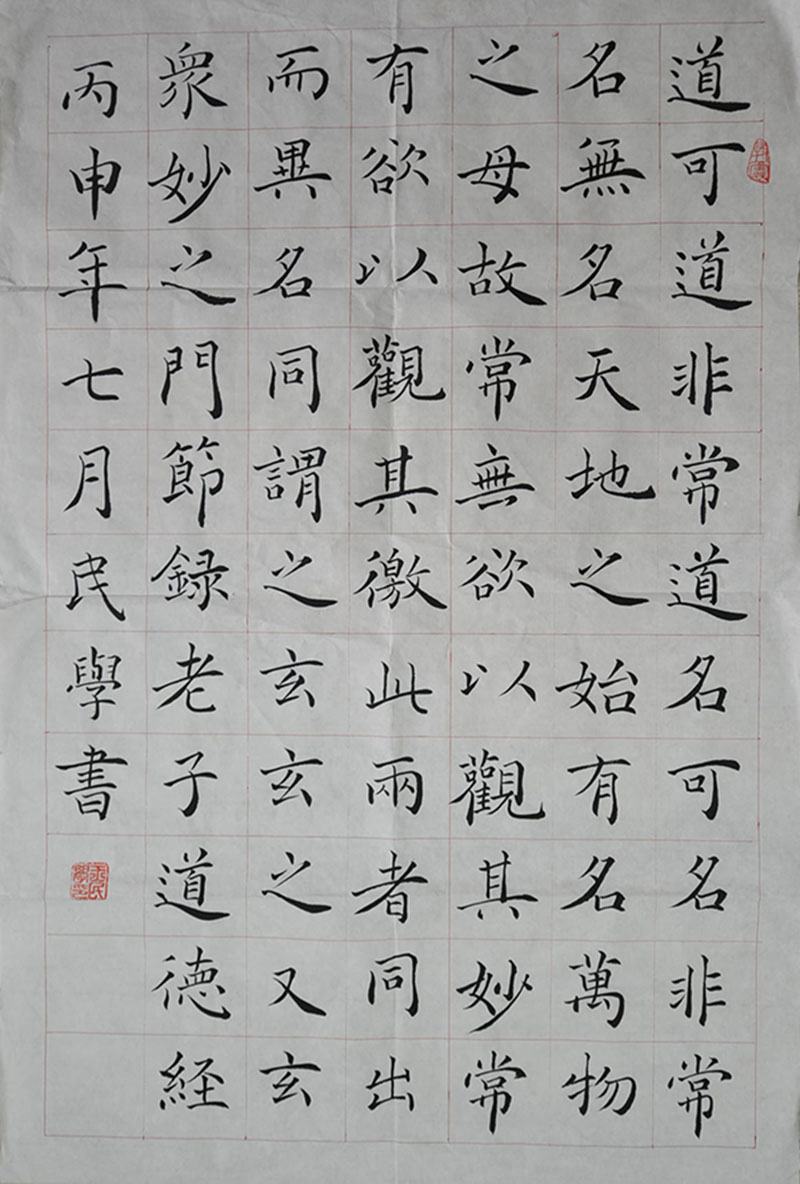 道可道非常道名可名非常
名無名天地之始有名萬物
之母故常無欲以觀其妙常
有欲以觀其徼此兩者同出
而異名同謂之玄玄之又玄
衆妙之門節録老子道德経
丙申年七月民學書